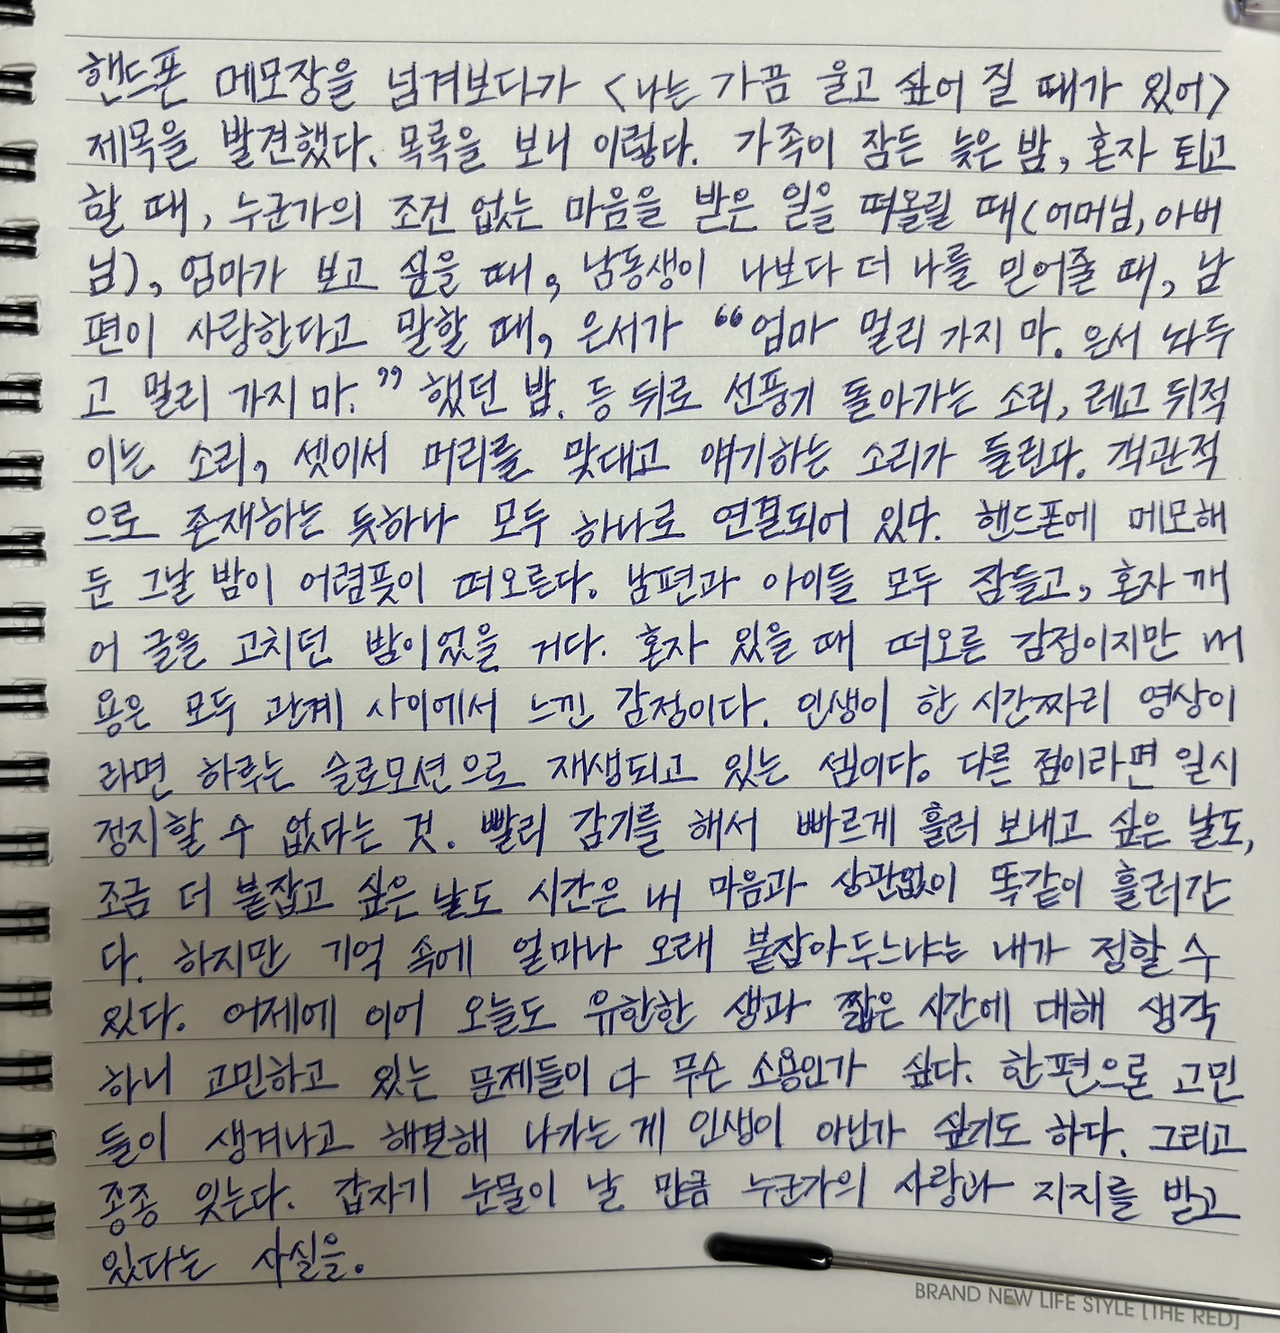 핸드폰 메모장을 넘겨보다가 <나는 가끔 울고 싶어 질 때가 있어>
제목을 발견했다. 목록을 보니 이렇다. 가족이 잠든 늦은 밤, 혼자 퇴고
할 때, 누군가의 조건 없는 마음을 받은 일을 떠올릴 때(어머님, 아버
님), 엄마가 보고 싶을 때, 남동생이 나보다 더 나를 믿어줄 때, 남
편이 사랑한다고 말할 때, 은서가 “엄마 멀리 가지 마. 은서 놔두
고 멀리 가지 마.” 했던 밤. 등 뒤로 선풍기 돌아가는 소리, 레고 뒤적
이는 소리, 셋이서 머리를 맞대고 얘기하는 소리가 들린다. 객관적
으로 존재하는 듯하나 모두 하나로 연결되어 있다. 핸드폰에 메모해
둔 그날 밤이 어렴풋이 떠오른다. 남편과 아이들 모두 잠들고, 혼자 깨
어 글을 고치던 밤이었을 거다. 혼자 있을 때 떠오른 감정이지만 내
용은 모두 관계 사이에서 느낀 감정이다. 인생이 한 시간짜리 영상이
라면 하루는 슬로모션으로 재생되고 있는 셈이다. 다른 점이라면 일시
정지할 수 없다는 것. 빨리 감기를 해서 빠르게 흘러 보내고 싶은 날도,
조금 더 붙잡고 싶은 날도 시간은 내 마음과 상관없이 똑같이 흘러간
다. 하지만 기억 속에 얼마나 오래 붙잡아두느냐는 내가 정할 수
있다. 어제에 이어 오늘도 유한한 생과 짧은 시간에 대해 생각
하니 고민하고 있는 문제들이 다 무슨 소용인가 싶다. 한편으론 고민
들이 생겨나고 해결해 나가는 게 인생이 아닌가 싶기도 하다. 그리고
종종 잊는다. 갑자기 눈물이 날 만큼 누군가의 사랑과 지지를 받고
있다는 사실을.
BRAND NEW LIFE STYLE [THE RED]